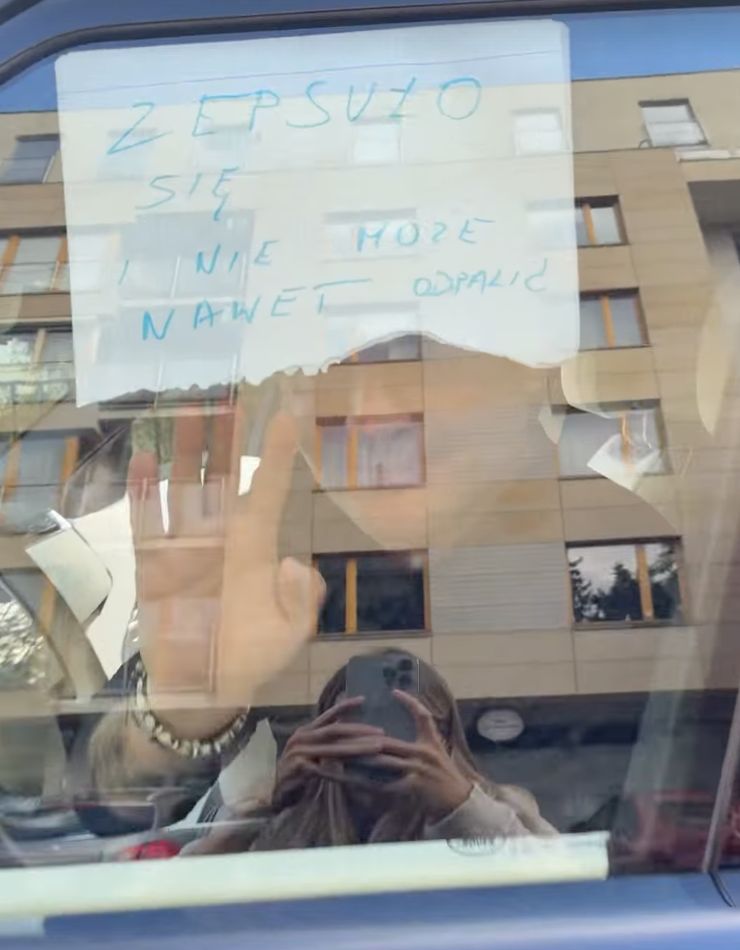 ZEPSUŁO
SIĘ
I NIE MOŻE
NAWET ODPALIĆ